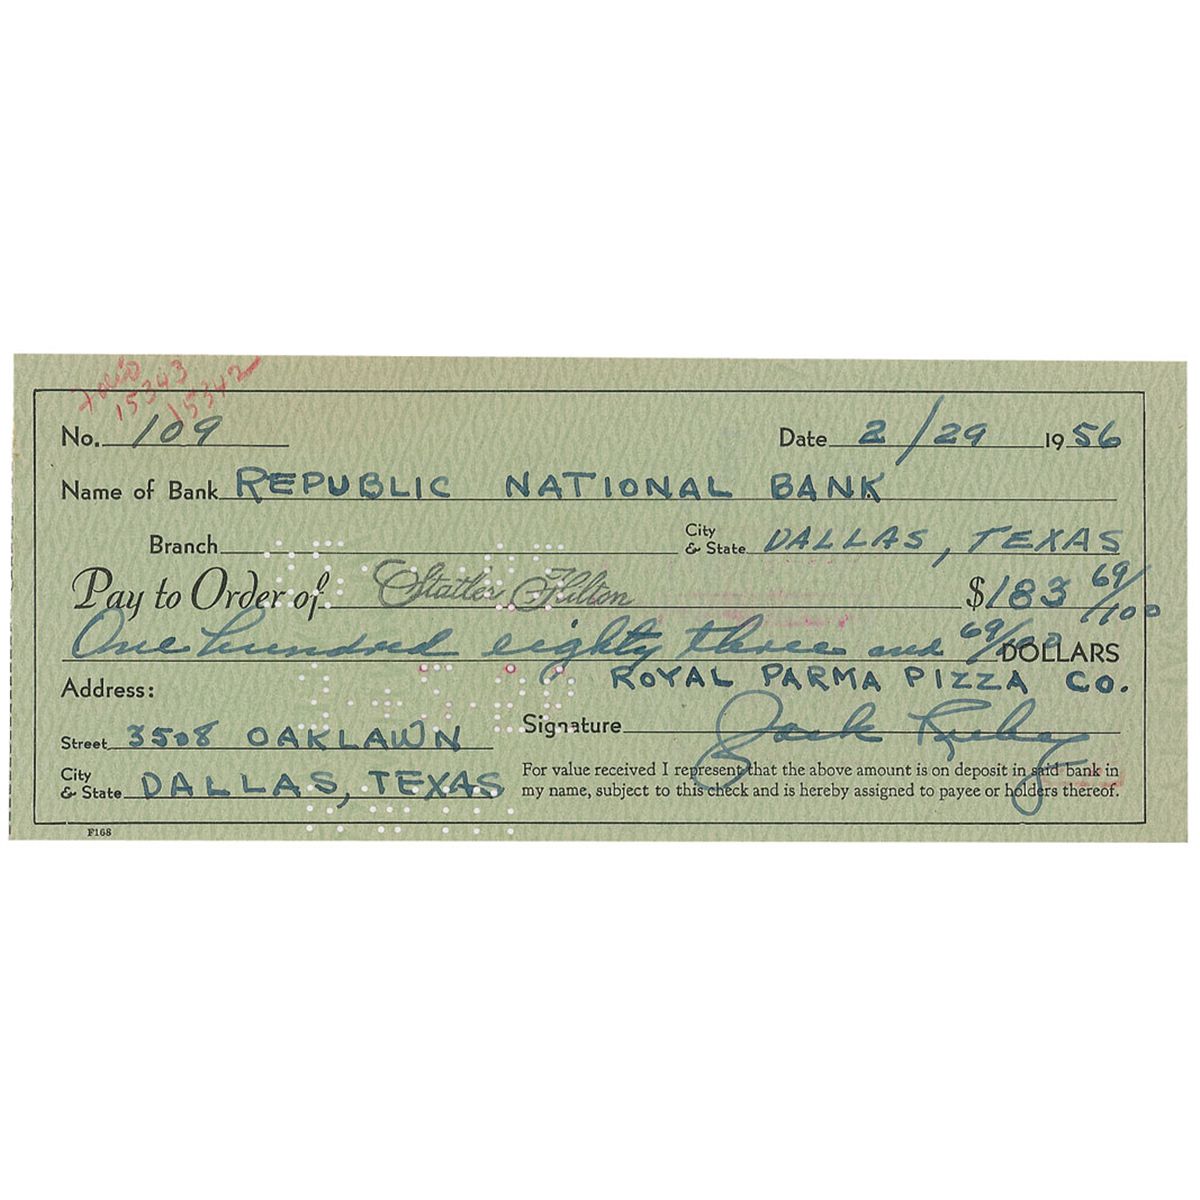 Folio
15343
15342
No. 109 Date 2/29 1956
Name of Bank REPUBLIC NATIONAL BANK
Branch City & State DALLAS, TEXAS
Pay to Order of Statler Hilton $183 69/100
One hundred eighty three and 69/100 DOLLARS
ROYAL PARMA PIZZA CO.
Address:
Signature Jack Ruby
Street 3508 OAKLAWN
City & State DALLAS, TEXAS
For value received I represent that the above amount is on deposit in said bank in
my name, subject to this check and is hereby assigned to payee or holders thereof.
F168